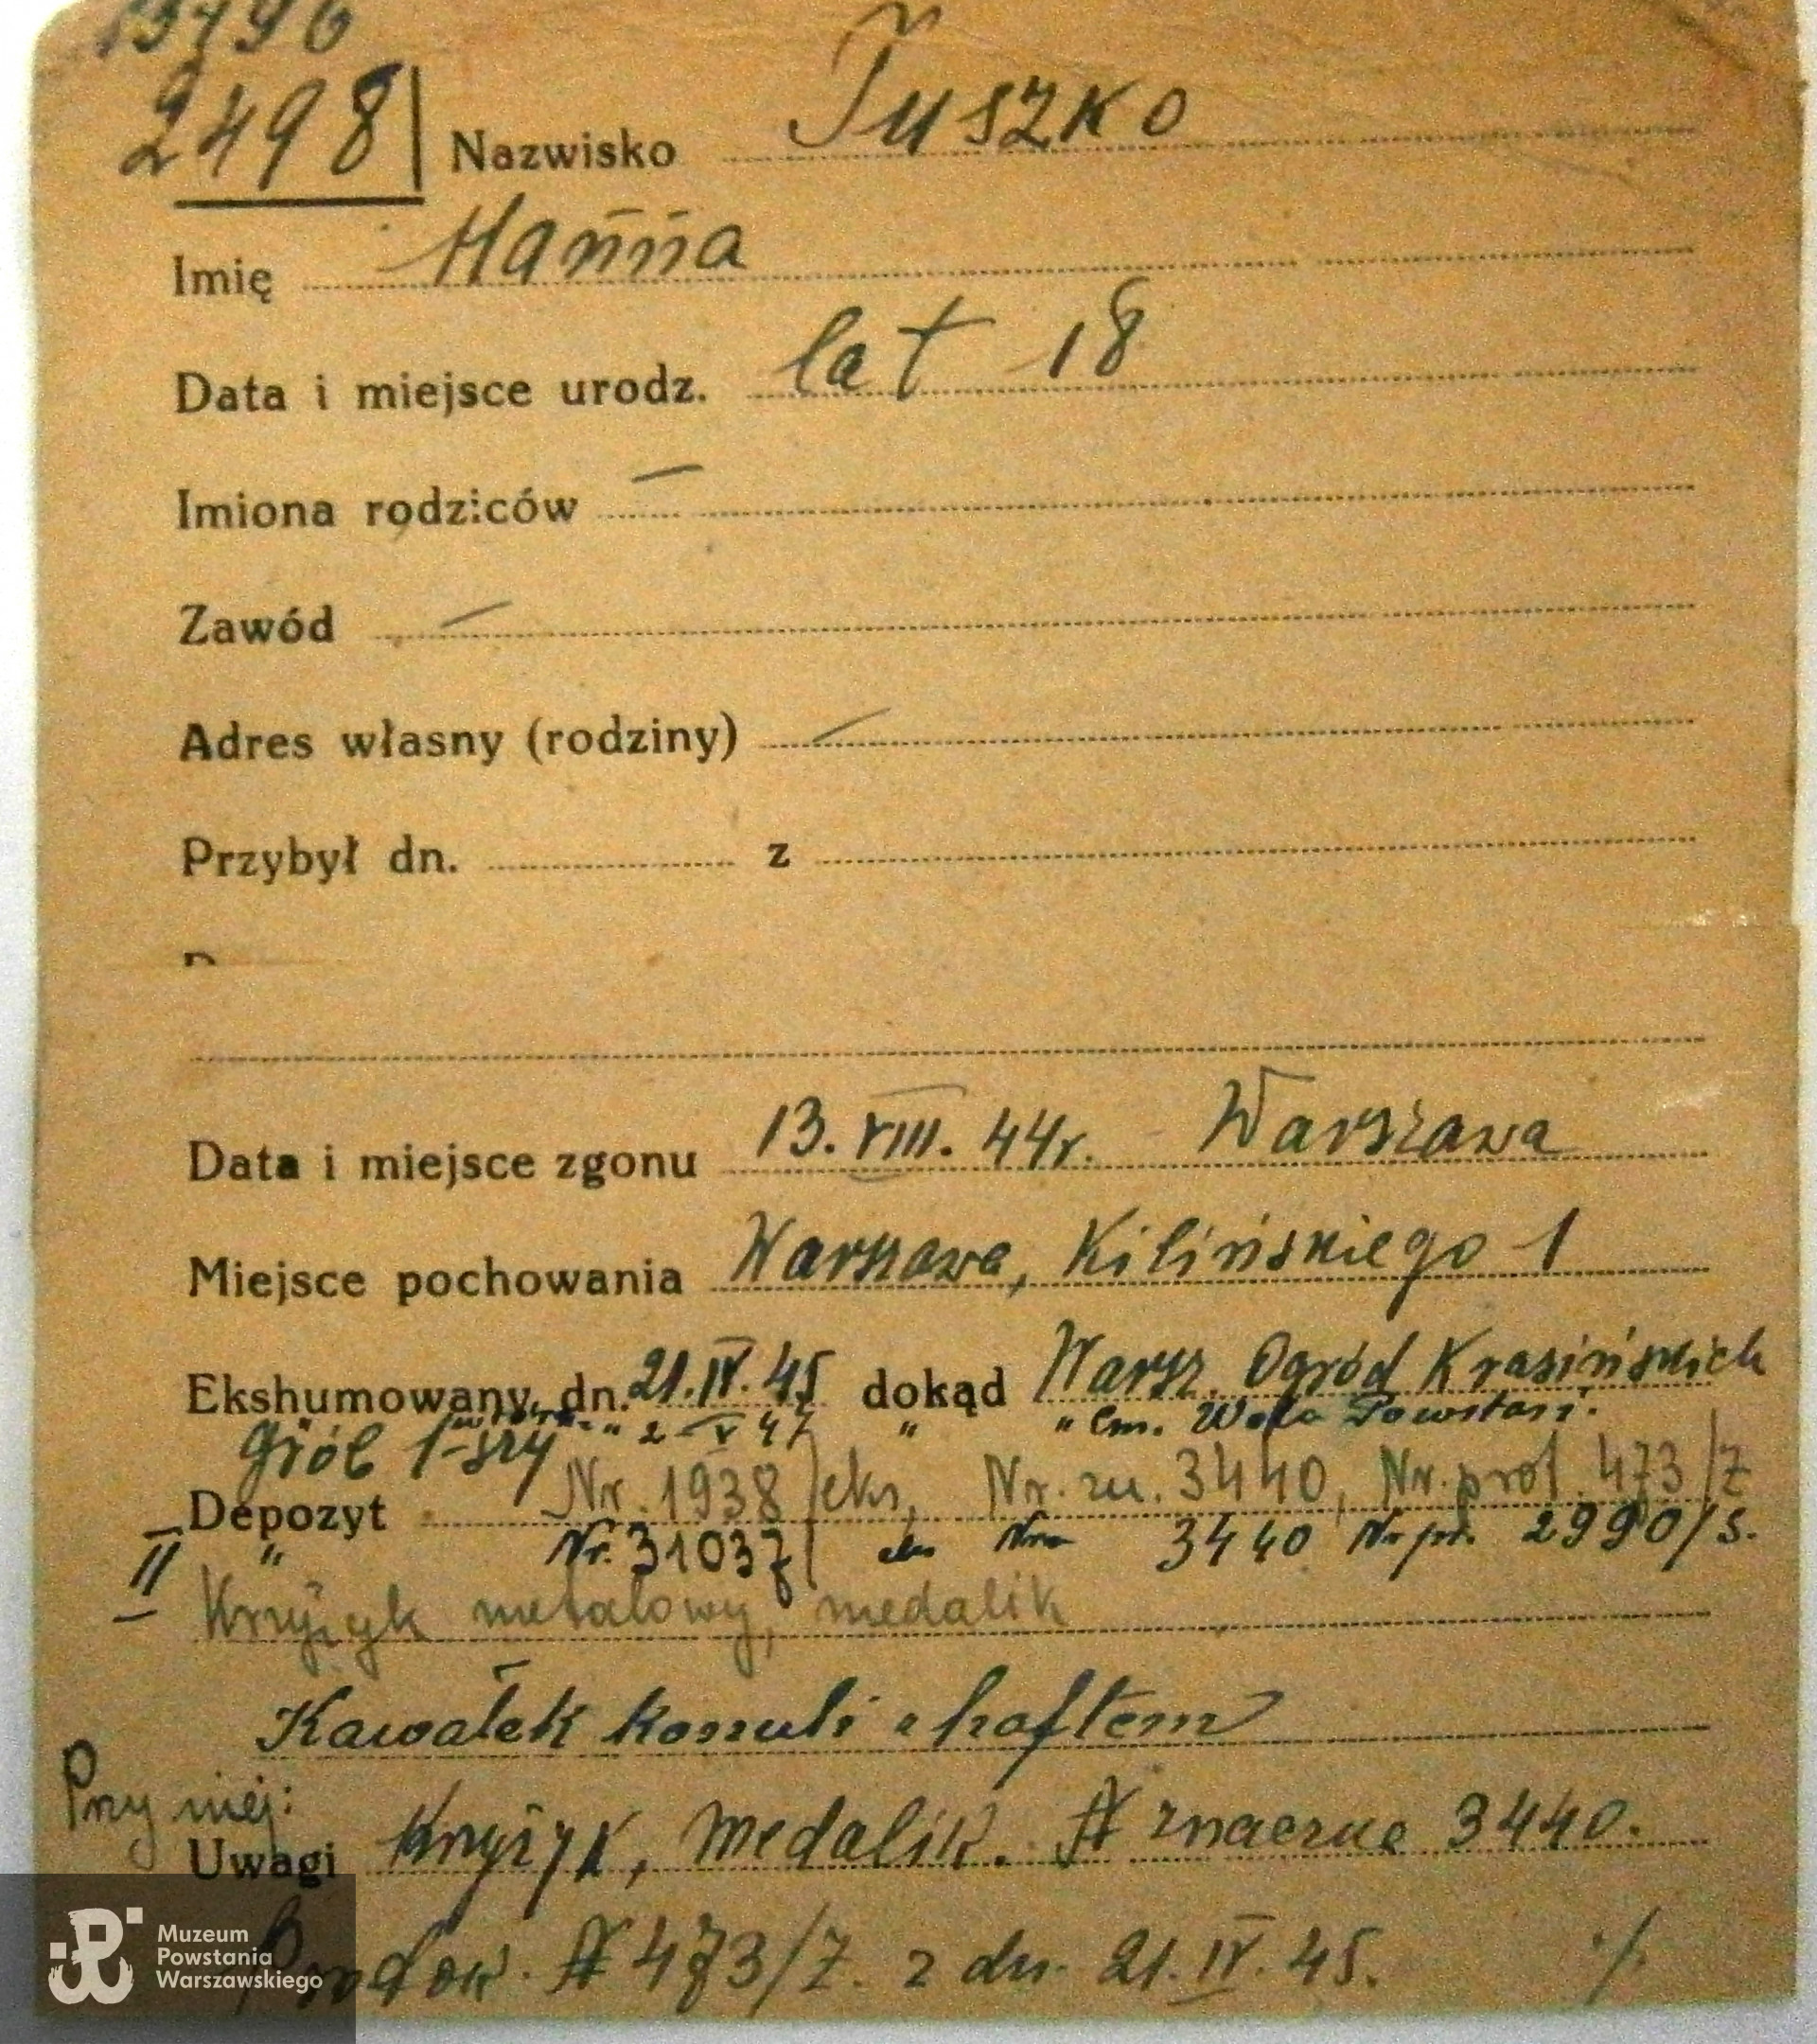 13496
2498 Nazwisko Tuszko
Imię Hanna
Data i miejsce urodz. lat 18
Imiona rodziców —
Zawód —
Adres własny (rodziny) —
Przybył dn. z
Data i miejsce zgonu 13.VIII.44r. Warszawa
Miejsce pochowania Warszawa, Kilińskiego 1
Ekshumowany dn. 21.IV.45 dokąd Warsz. Ogród Krasińskich
" 2 V 47 " " Cm. Wola Powstań.
Grób 1-szy
Depozyt Nr. 1938/eks, Nr. zn. 3440, Nr. prot. 473/Z
II " Nr. 31037/ 3440 Nr pr. 2990/S.
Krzyżyk metalowy, medalik
Kawałek koszuli z haftem
Przy niej:
Uwagi Krzyżyk, medalik. N znaczka 3440.
N 473/Z. z dn. 21.IV.45. ./.
Muzeum
Powstania
Warszawskiego